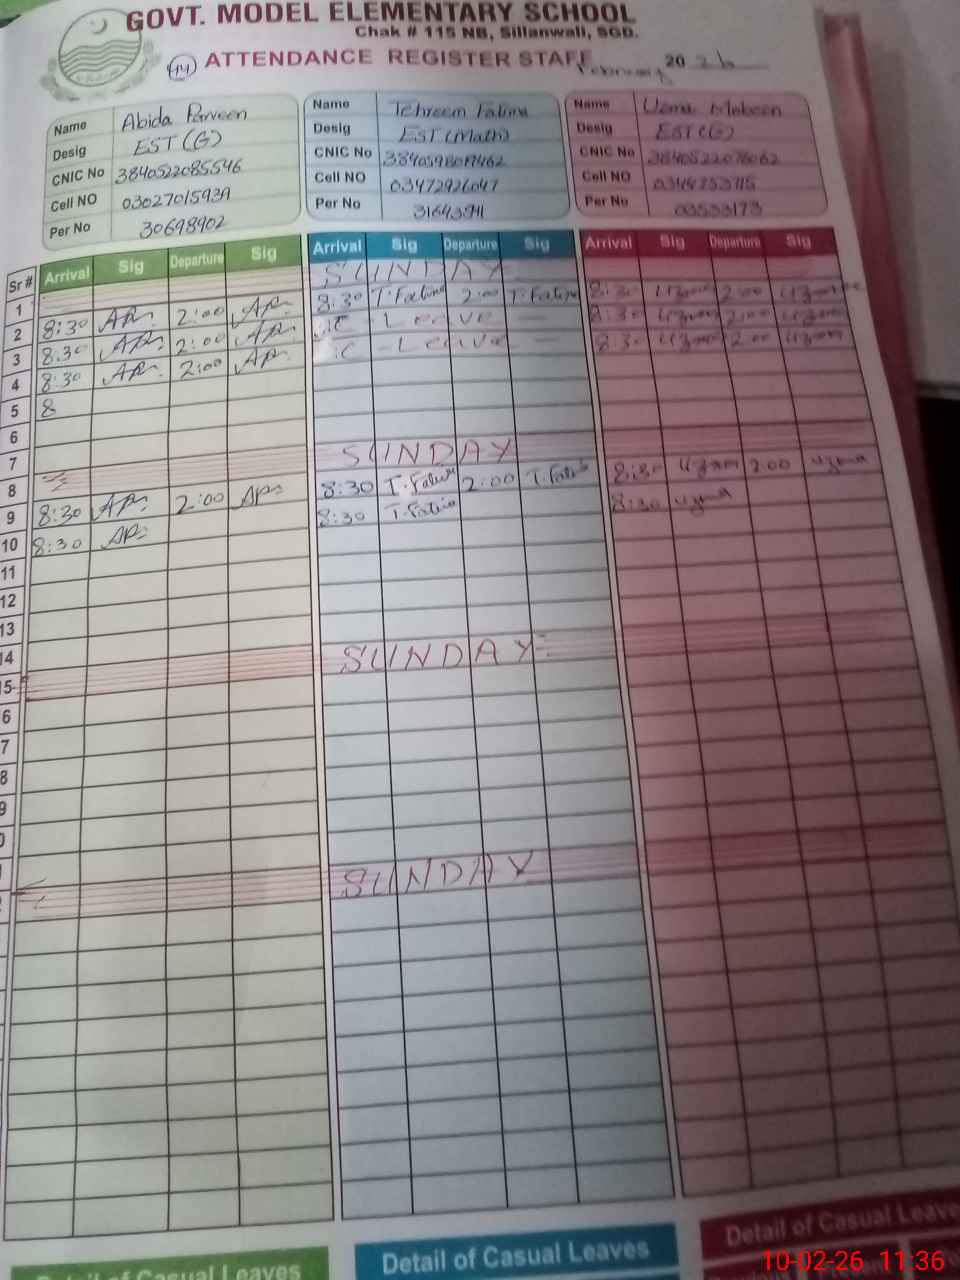 GOVT. MODEL ELEMENTARY SCHOOL
Chak # 115 NB, Sillanwali, SGD.
14 ATTENDANCE REGISTER STAFF February 2026
Name Abida Parveen
Desig EST (G)
CNIC No 3840522085546
Cell NO 03027015939
Per No 30698902
Name Tehreem Fatima
Desig EST (Math)
CNIC No
Cell NO 03472926047
Per No
Name
Desig EST (G)
CNIC No
Cell NO
Per No
Sr # Arrival Sig Departure Sig Arrival Sig Departure Sig Arrival Sig Departure Sig
1 SUNDAY
2 8:30 AP. 2:00 AP. 8:30 T.Fatima 2:00 T.Fatima 8:30 Uzma 2:00 Uzma
3 8:30 AP. 2:00 AP. - Leave - 8:30 Uzma 2:00 Uzma
4 8:30 AP. 2:00 AP. - Leave - 8:30 Uzma 2:00 Uzma
5 8
6
7
8 SUNDAY
9 8:30 AP. 2:00 AP. 8:30 T.Fatima 2:00 T.Fatima 8:30 Uzma 2:00 Uzma
10 8:30 AP. 8:30 T.Fatima 8:30 Uzma
11
12
13
14
15 SUNDAY
6
7
8
9
0
SUNDAY
Detail of Casual Leaves
Detail of Casual Leaves
Detail of Casual Leaves
10-02-26 11:36